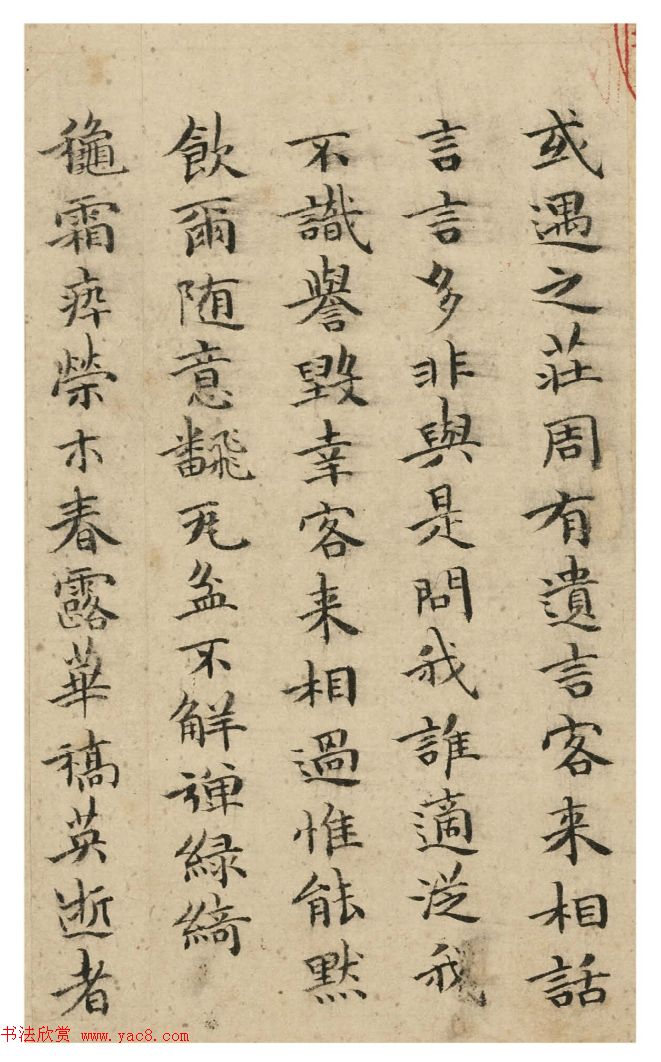 或遇之莊周有遺言客来相話
言言多非與是問我誰適従我
不識譽毀幸客来相過惟能默
飲爾随意飜瓦盆不觧弹緑綺
龝霜瘁榮木春露華稿英逝者
书法欣赏 www.yac8.com